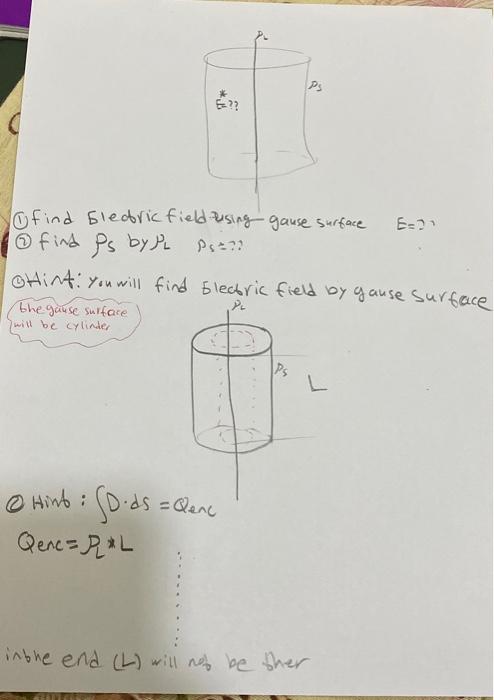 ρL
ρs
*
E=??
① find Electric field using gause surface E=??
② find ρs by ρL ρs=??
① Hint: you will find Electric field by gause surface
the gause surface
will be cylinder
ρL
ρs
L
② Hint: ∫D·ds = Qenc
Qenc = ρL * L
in the end (L) will not be ther